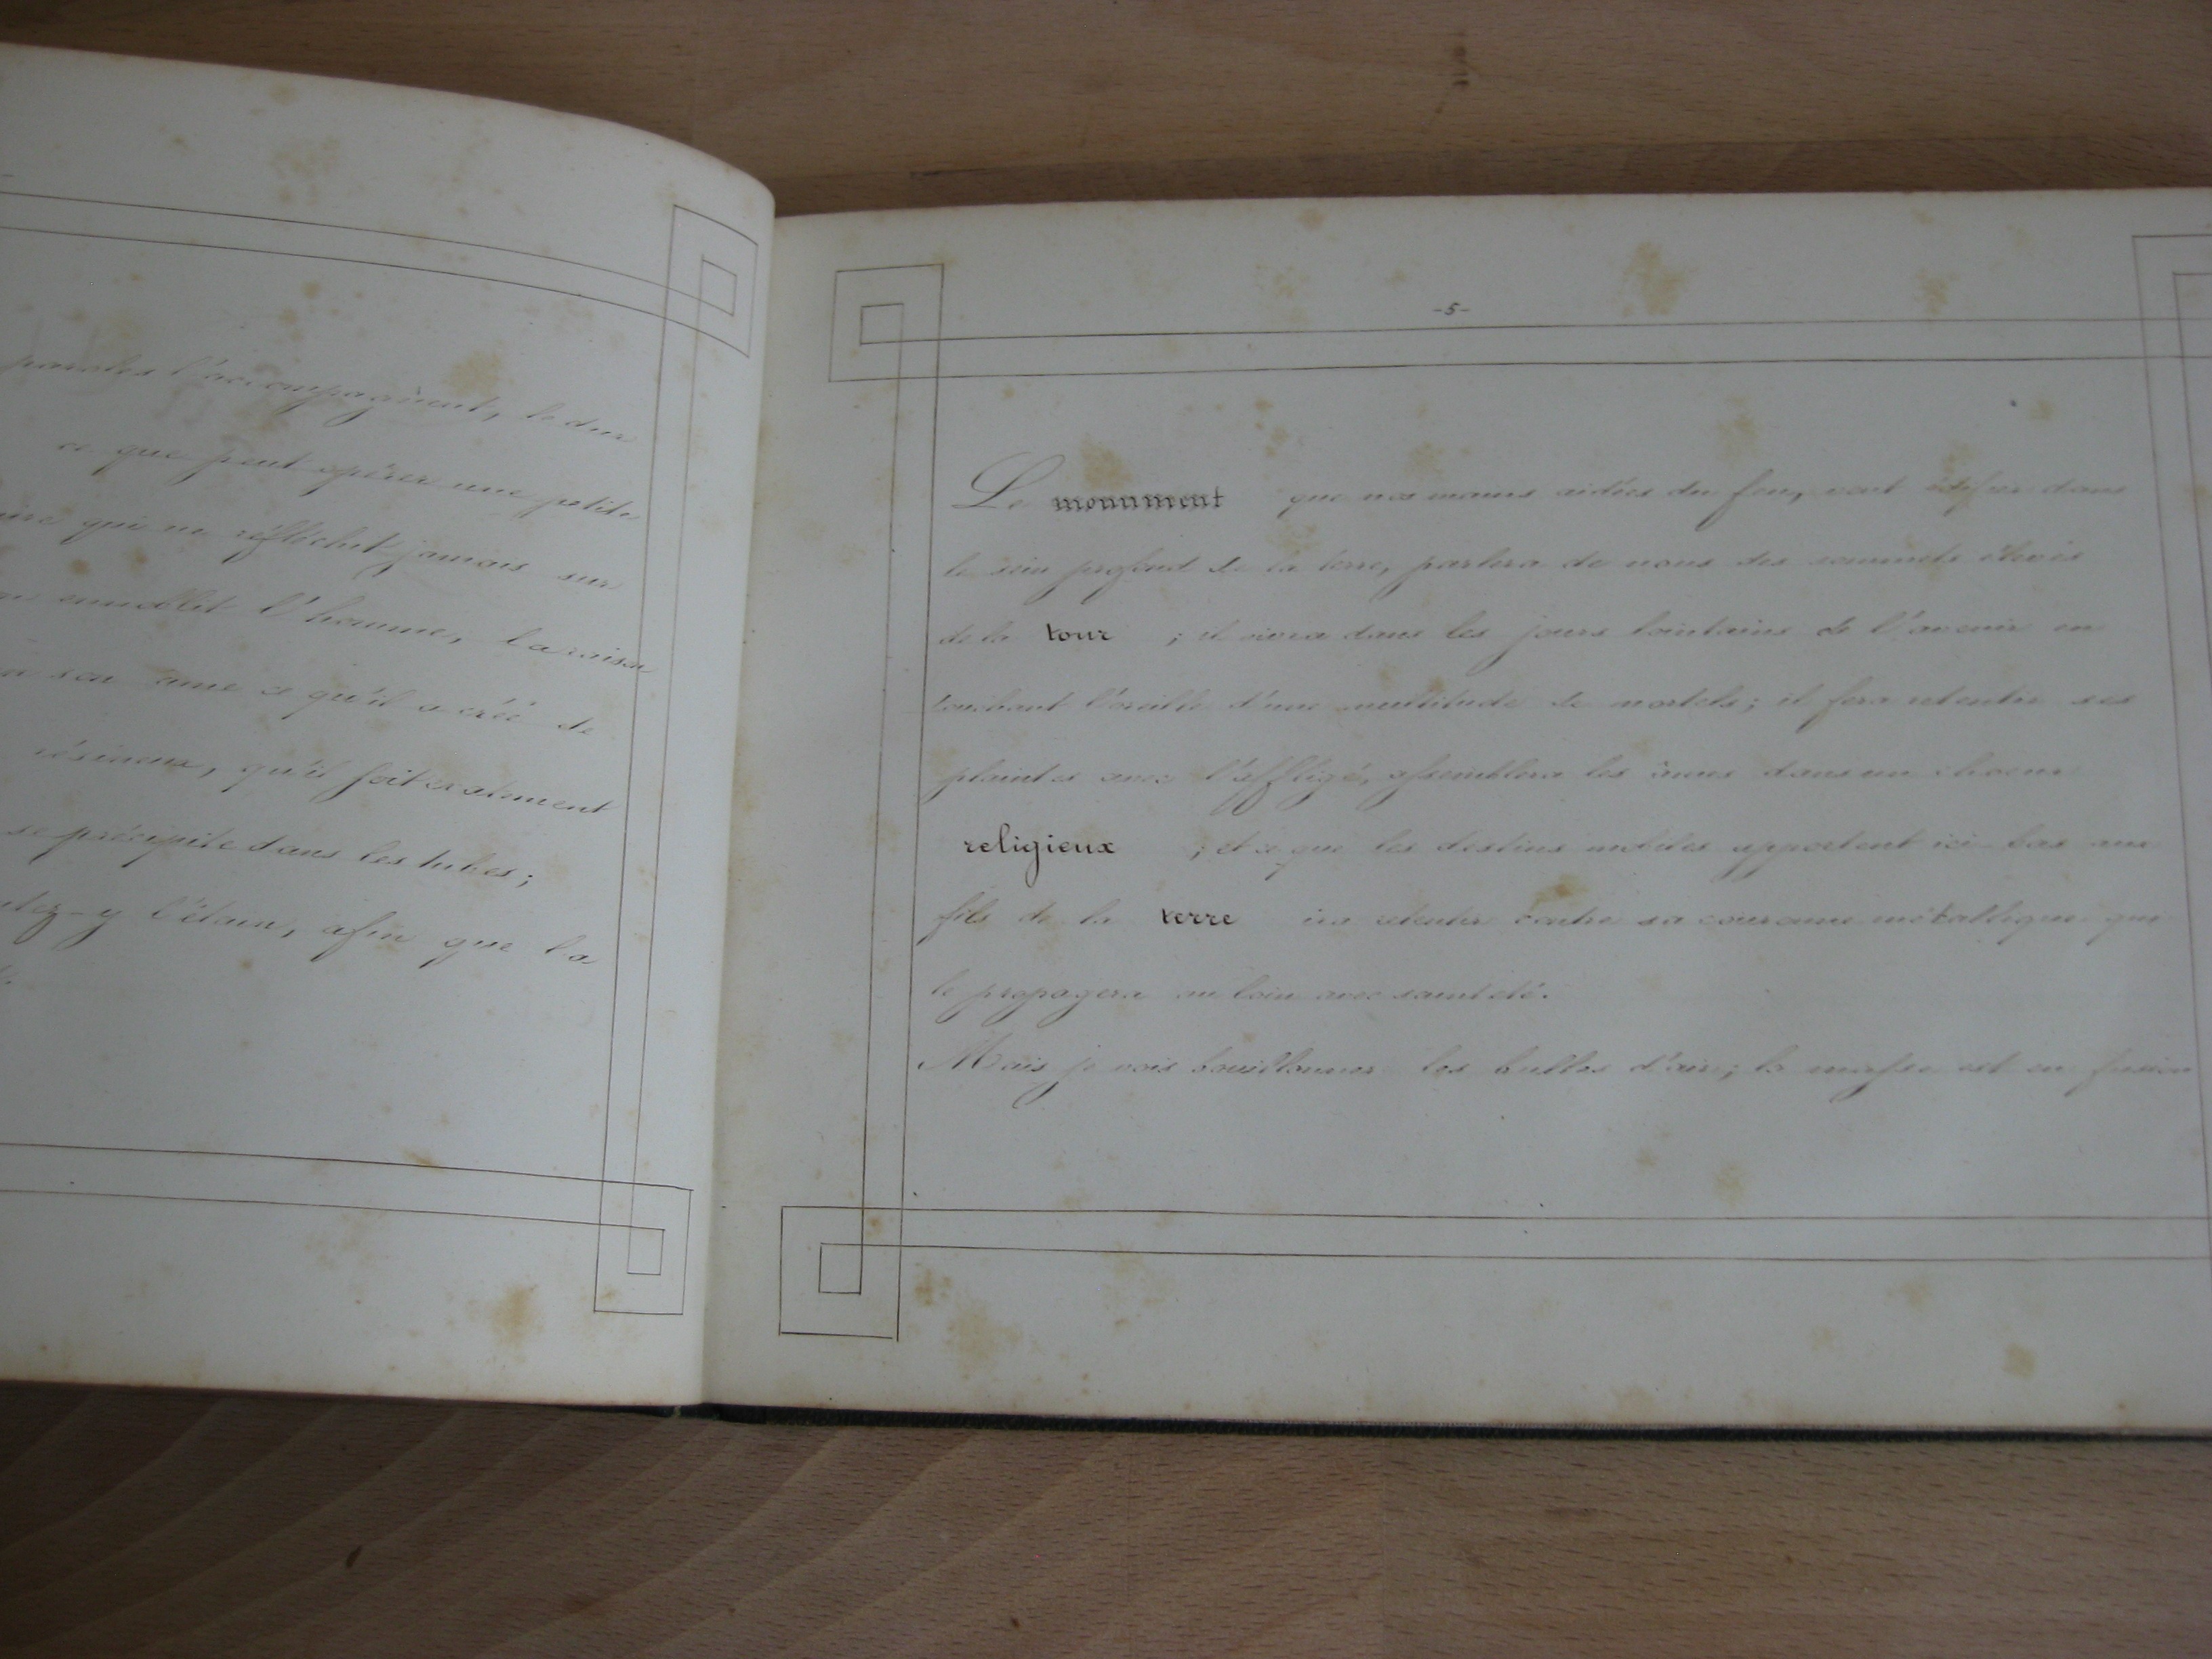 paroles l'accompagnent, le dur
ce que peut opérer une petite
qui ne réfléchit jamais sur
ennoblit l'homme, la raison
son âme ce qu'il a créé de
résineux, qu'il soit exalement
se précipite dans les tubes;
l'étain, afin que la
-5-
Le monument que nos mains aidées du feu, vont édifier dans
le sein profond de la terre, parlera de nous des sommets élevés
de la tour ; il vivra dans les jours lointains de l'avenir en
touchant l'oreille d'une multitude de mortels; il fera retentir ses
plaintes avec l'affligé, assemblera les âmes dans un choeur
religieux ; et ce que les destins mobiles apportent ici-bas aux
fils de la terre ira retentir contre sa couronne métallique qui
le propagera au loin avec sainteté.
Mais je vois bouillonner les bulles d'air; la masse est en fusion